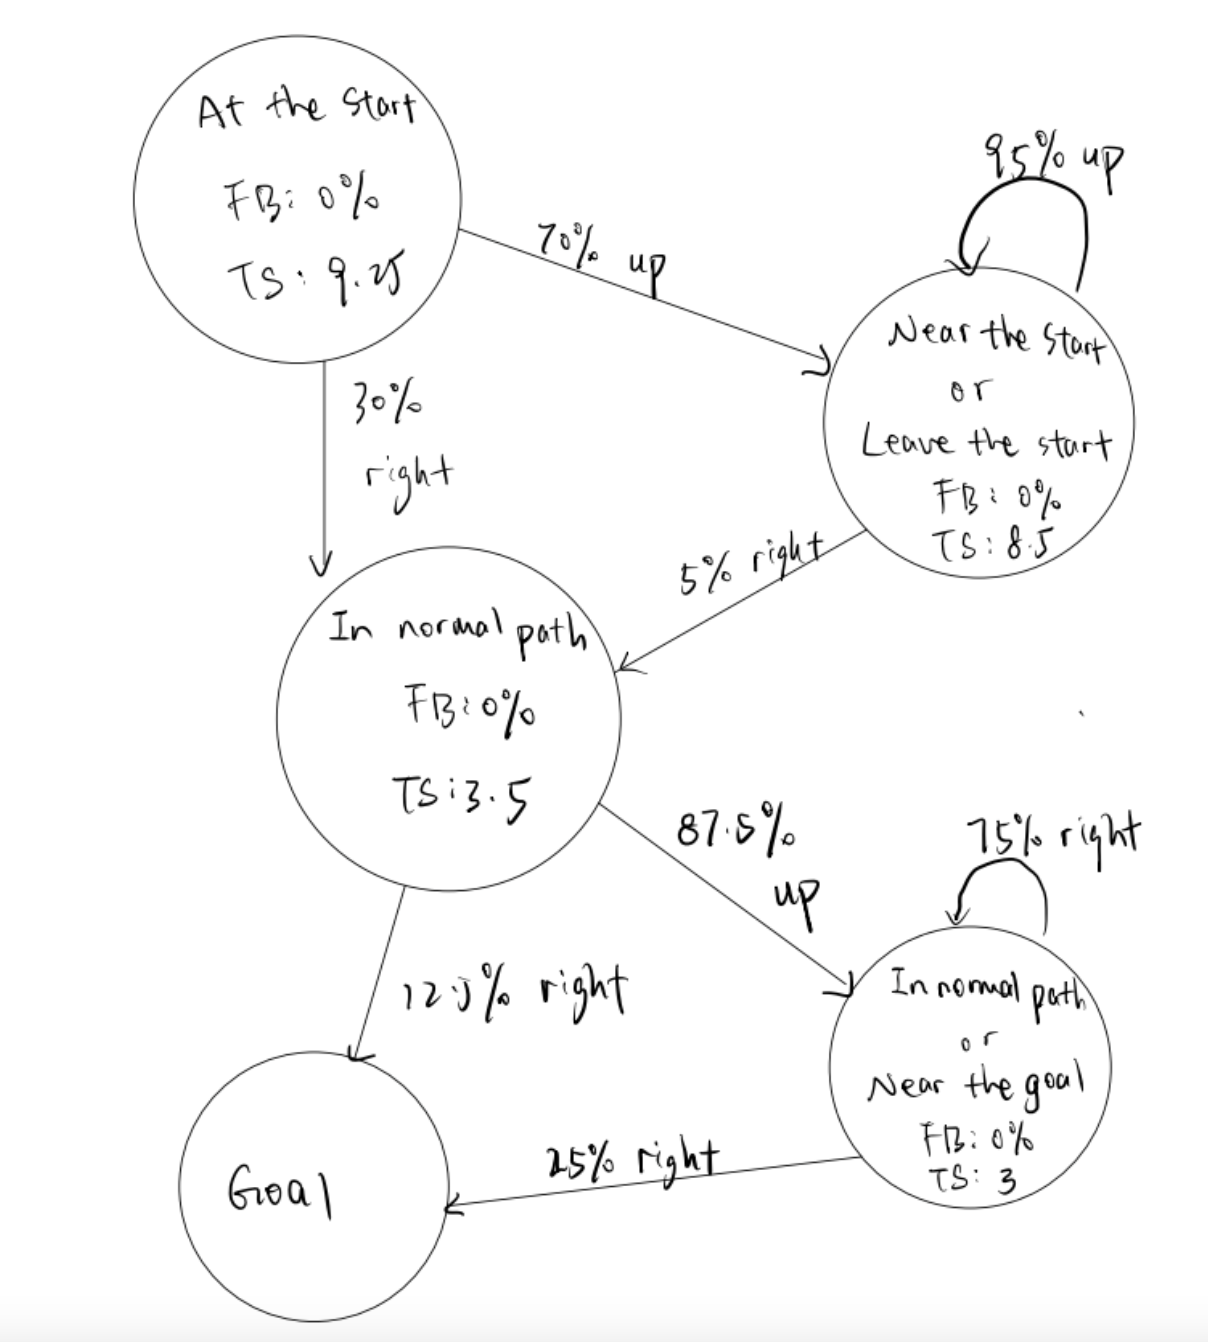 At the start
FB: 0%
TS: 9.25
70% up
95% up
Near the start
or
Leave the start
FB: 0%
TS: 8.5
30%
right
5% right
In normal path
FB: 0%
TS: 3.5
87.5%
up
75% right
12.5% right
In normal path
or
Near the goal
FB: 0%
TS: 3
25% right
Goal